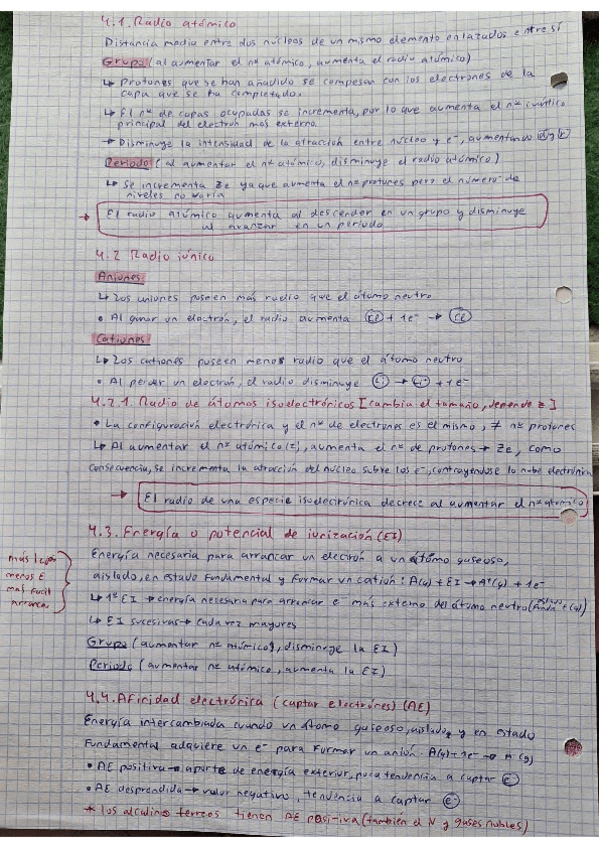 4.1. Radio atómico
Distancia media entre dos núcleos de un mismo elemento enlazados entre sí
Grupo (al aumentar el nº atómico, aumenta el radio atómico)
↳ Protones que se han añadido se compesan con los electrones de la
capa que se ha completado.
↳ El nº de capas ocupadas se incrementa, por lo que aumenta el nº cuántico
principal del electron más externo.
→ Disminuye la intensidad de la atracción entre núcleo y e⁻, aumentando
Periodo (al aumentar el nº atómico, disminuye el radio atómico)
↳ Se incrementa Ze ya que aumenta el nº protones pero el número de
niveles no varía
→ El radio atómico aumenta al descender en un grupo y disminuye
al avanzar en un periodo
4.2 Radio iónico
Aniones
↳ Los aniones poseen más radio que el átomo neutro
• Al ganar un electrón, el radio aumenta Cl + 1e⁻ → Cl⁻
Cationes
↳ Los cationes poseen menos radio que el átomo neutro
• Al perder un electron, el radio disminuye Li → Li⁺ + 1e⁻
4.2.1. Radio de átomos isoelectrónicos [cambia el tamaño, depende Z]
• La configuración electrónica y el nº de electrones es el mismo, ≠ nº protones
↳ Al aumentar el nº atómico (Z), aumenta el nº de protones → Ze, como
consecuencia, se incrementa la atracción del núcleo sobre los e⁻, contrayéndose la nube electrónica
→ El radio de una especie isoelectrónica decrece al aumentar el nº atómico
4.3. Energía o potencial de ionización (EI)
Energía necesaria para arrancar un electrón a un átomo gaseoso,
aislado, en estado fundamental y formar un catión: A(g) + EI → A⁺(g) + 1e⁻
más
menos E
mas facil
arrancar
↳ 1ª EI → energía necesaria para arrancar e⁻ más externo del átomo neutro
↳ EI sucesivas → cada vez mayores
Grupo (aumentar nº atómico, disminuye la EI)
Periodo (aumentar nº atómico, aumenta la EI)
4.4. Afinidad electrónica (captar electrones) (AE)
Energía intercambiada cuando un átomo gaseoso, aislado, y en estado
fundamental adquiere un e⁻ para formar un anión. A(g) + 1e⁻ → A⁻(g)
• AE positiva → aporte de energía exterior, poca tendencia a captar e⁻
• AE desprendida → valor negativo, tendencia a captar e⁻
* los alcalino terreos tienen AE positiva (también el N y gases nobles)